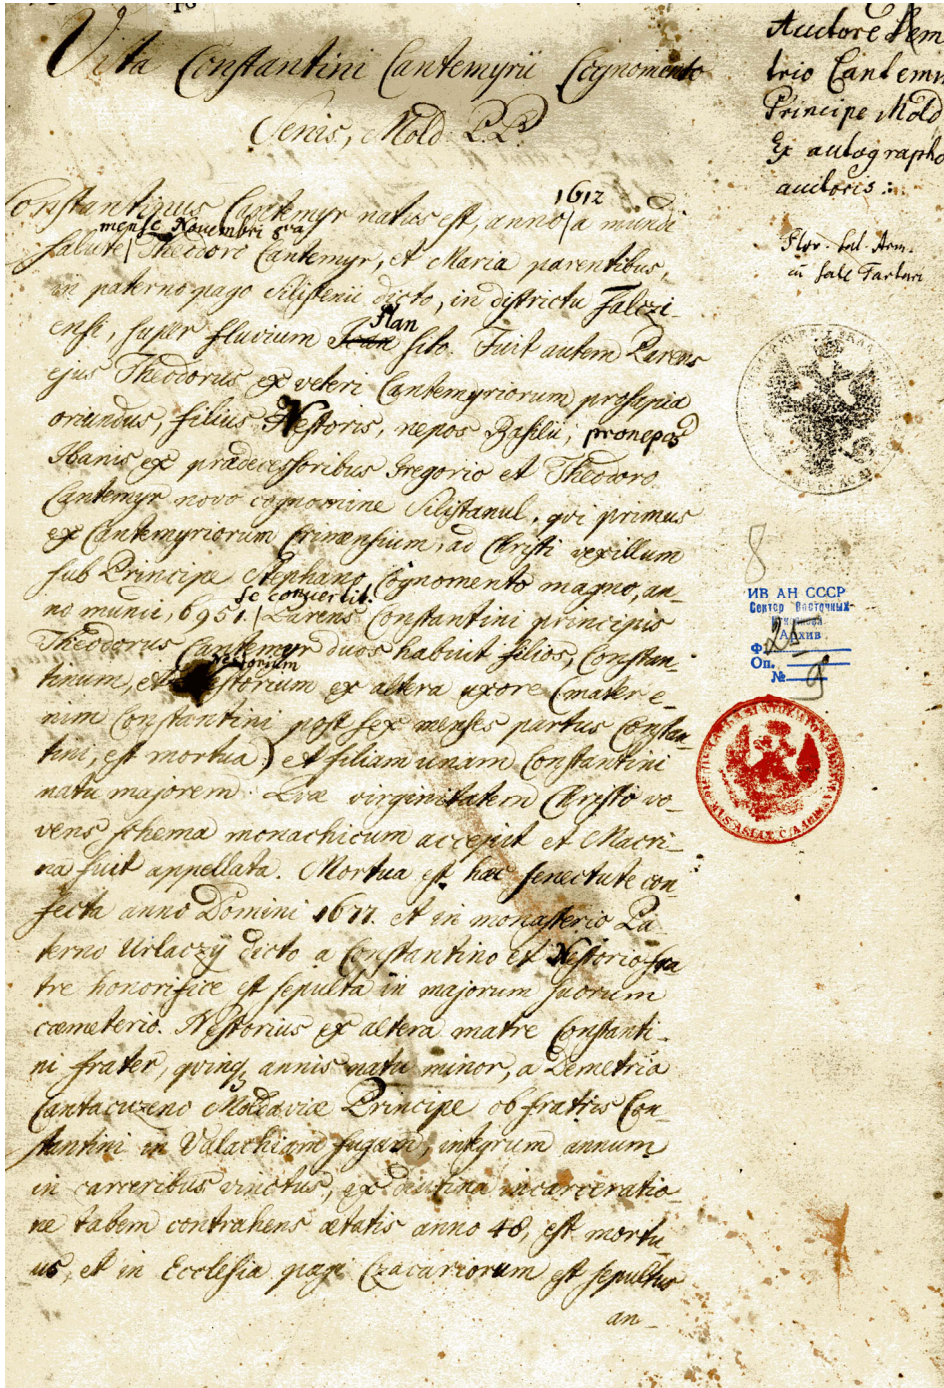 Vita Constantini Cantemyrii Cognomento
Senis, Mold. P.P.
Auctore Dem
trio Cantem
Principe Mold
Ex autographo
auctoris:
1612
Constantinus Cantemyr natus est, anno | a mundi
mense Novembri 8va
salute | Theodoro Cantemyr, et Maria parentibus,
in paterno pago Silistenii dicto, in districtu Falczi-
Flan
ensi, super fluvium sito. Fuit autem Parens
ejus Theodorus ex veteri Cantemyriorum prosapia
oriundus, filius Nestoris, nepos Basilii, pronepos
Ibanis ex prædecessoribus Gregorio et Theodoro
Cantemyr novo cognomine Silistanul, qvi primus
ex Cantemyriorum Crimensium, ad Christi vexillum
sub Principe Stephano, Cognomento magno, an-
se convertit.
no mundi, 6951. | Parens Constantini principis
Theodorus Cantemyr duos habuit filios, Constan-
Nestorium
tinum, et Nestorium ex altera uxore (mater e-
nim Constantini post sex menses partus Constan-
tini, est mortua) et filiam unam Constantini
natu majorem. Qvæ virginitatem Christo vo-
vens schema monachicum accepit et Macri-
na fuit appellata. Mortua est hæc senectute con-
fecta anno Domini 1677. et in monasterio Pa
terno Urlaczÿ dicto a Constantino et Nestorio fra
tre honorifice est sepulta in majorum suorum
cœmeterio. Nestorius ex altera matre Constanti-
ni frater, qvinq annis natu minor, a Demetrio
Cantacuzeno Moldaviæ Principe ob fratris Con-
stantini in Valachiam fugam, integrum annum
in carceribus vinctus, ex diutina incarceratio-
ne tabem contrahens ætatis anno 48, est mortu
us, et in Ecclesia pagi Czacariorum est sepultus
an-
8
ИВ АН СССР
Сектор Восточных
Архив
Ф. 25
Оп.
№ 9